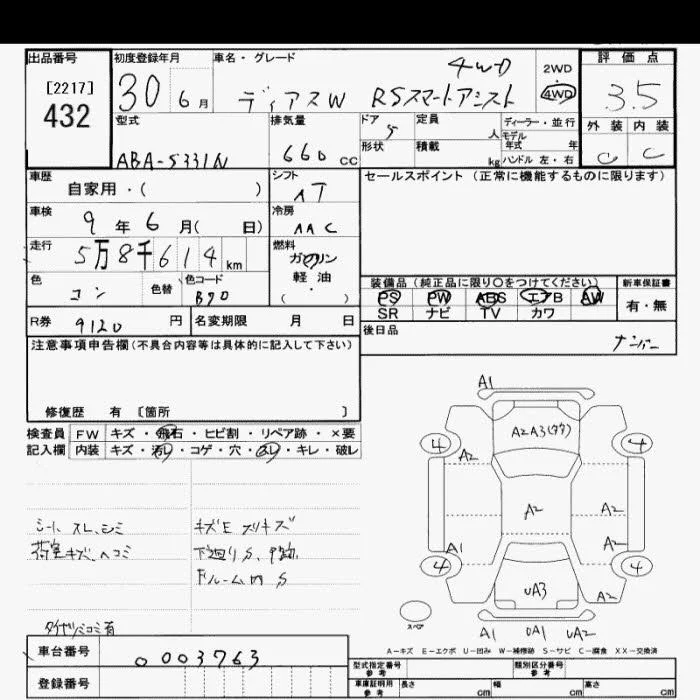 出品番号
[2217]
432
初度登録年月
30 6月
車名・グレード
4WD
ディアスW RSスマートアシスト
2WD
4WD
評価点
3.5
外装 内装
C C
型式
ABA-S331N
排気量
660cc
ドア
5
形状
定員
人
積載
kg
ディーラー・並行
モデル
年式 年
ハンドル 左・右
車歴
自家用・( )
シフト
AT
セールスポイント(正常に機能するものに限ります)
車検
9年6月( 日)
冷房
AAC
走行
5万8千614km
燃料
ガソリン
軽油
・
( )
色
コン
色替
色コード
B70
装備品(純正品に限り〇をつけてください)
PS PW ABS エアB AW
SR ナビ TV カワ
新車保証書
有・無
R券 9120円
名変期限 月 日
後日品
ナンバー
注意事項申告欄(不具合内容等は具体的に記入して下さい)
修復歴 有 [箇所 ]
検査員 FW キズ・飛石・ヒビ割・リペア跡・×要
記入欄 内装 キズ・汚レ・コゲ・穴・スレ・キレ・破レ
シート スレ、シミ
荷室キズ、ヘコミ
タイヤツミコミ有
キズE スリキズ
下廻りS、
Fルーム内S
A1
A2A3(タタ)
4 4
A2
A2 A2
A2
A1
4 4
UA3 A2
スペア
A1 UA1 UA2
A-キズ E-エクボ U-凹み W-補修跡 S-サビ C-腐食 XX-交換済
車台番号
0003763
登録番号
型式指定番号
参考
類別区分番号
参考
車庫証明用
参考
長さ cm 幅 cm 高さ cm